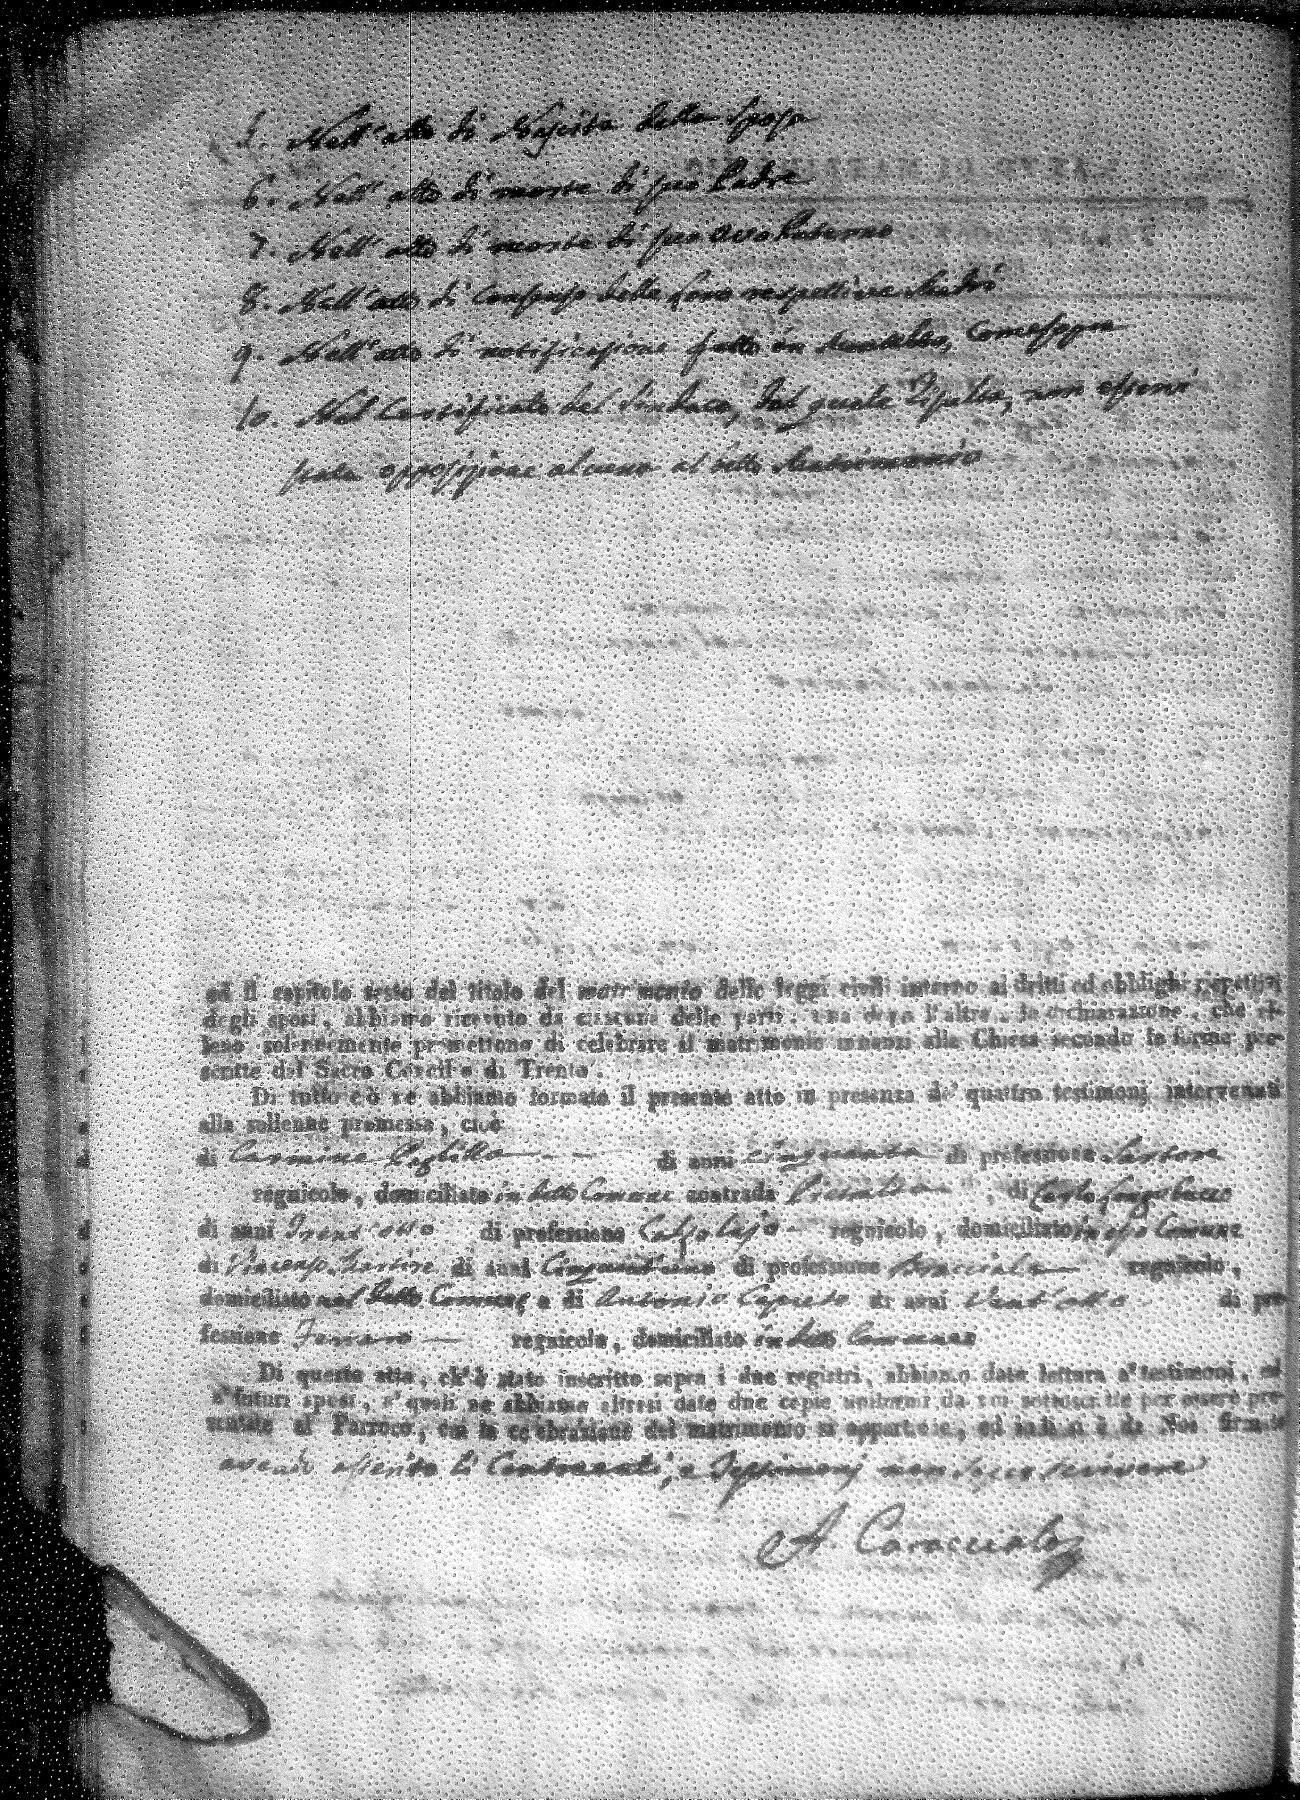 5. Nell'atto di Nascita della Sposa
6. Nell'atto di morte di suo Padre
7. Nell'atto di morte di suo avo Paterno
8. Nell'atto di Consenso delle loro rispettive Madri
9. Nell'atto di notificazione fatto in
10. Nel Certificato del Sindaco, dal quale risulta, non esservi
stata opposizione alcuna al detto Matrimonio
ed il capitolo sesto del titolo del matrimonio delle leggi civili intorno ai dritti ed obblighi rispettivi
degli sposi, abbiamo ricevuto da ciascuna delle parti, una dopo l'altra, la dichiarazione, che el-
leno solennemente promettono di celebrare il matrimonio innanzi alla Chiesa secondo le forme pre-
scritte dal Sacro Concilio di Trento.
Di tutto ciò ne abbiamo formato il presente atto in presenza de' quattro testimonj intervenuti
alla sollenne promessa, cioè
di Carmine di anni cinquanta di professione Sartore
regnicolo, domiciliato in detto Comune contrada , di Carlo Longobucco
di anni Trent'otto di professione Calzolajo regnicolo, domiciliato in esso Comune
di Vincenzo di anni Cinquantuno di professione Bracciale regnicolo,
domiciliato nel detto Comune, e di Antonio Caputo di anni Vent'otto di pro-
fessione Ferraro regnicolo, domiciliato in detto Comune
Di questo atto, ch'è stato inscritto sopra i due registri, abbiamo data lettura a' testimonj, ed
a' futuri sposi, a' quali ne abbiamo altresì date due copie uniformi da noi sottoscritte per essere pre-
sentate al Parroco, cui la celebrazione del matrimonio si appartiene, ed indi si è da Noi firmato
avendo asserito li Contraenti, e Testimonj non saper scrivere
A. Caracciolo